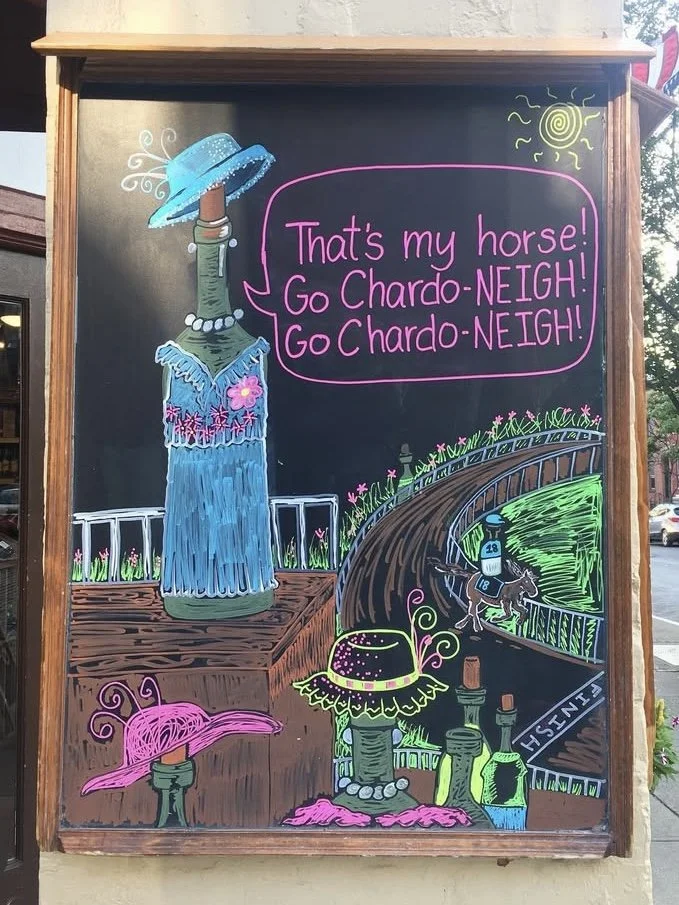 That's my horse!
Go Chardo-NEIGH!
Go Chardo-NEIGH!
18
18
FINISH